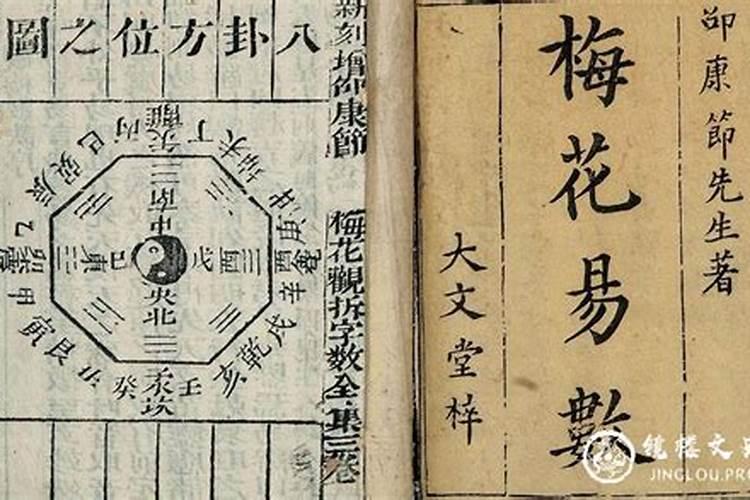 卲康節先生著
梅花易數
大文堂梓
新刻增卲康節
梅花觀拆字數全集三卷
八卦方位之圖
巳 丙 午 離 丁 未
辰 巽 坤 申
南
中
乙 卯 震 甲 東 己 戊 酉 庚 酉 兌 辛
央
北
寅 艮 丑 癸 子 坎 壬 亥 乾 戌
楼文
JINGLOU.PR